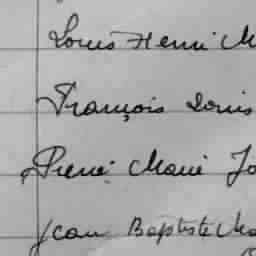 Louis Henri M
François Louis
Pierre Marie Jo
Jean Baptiste Ma